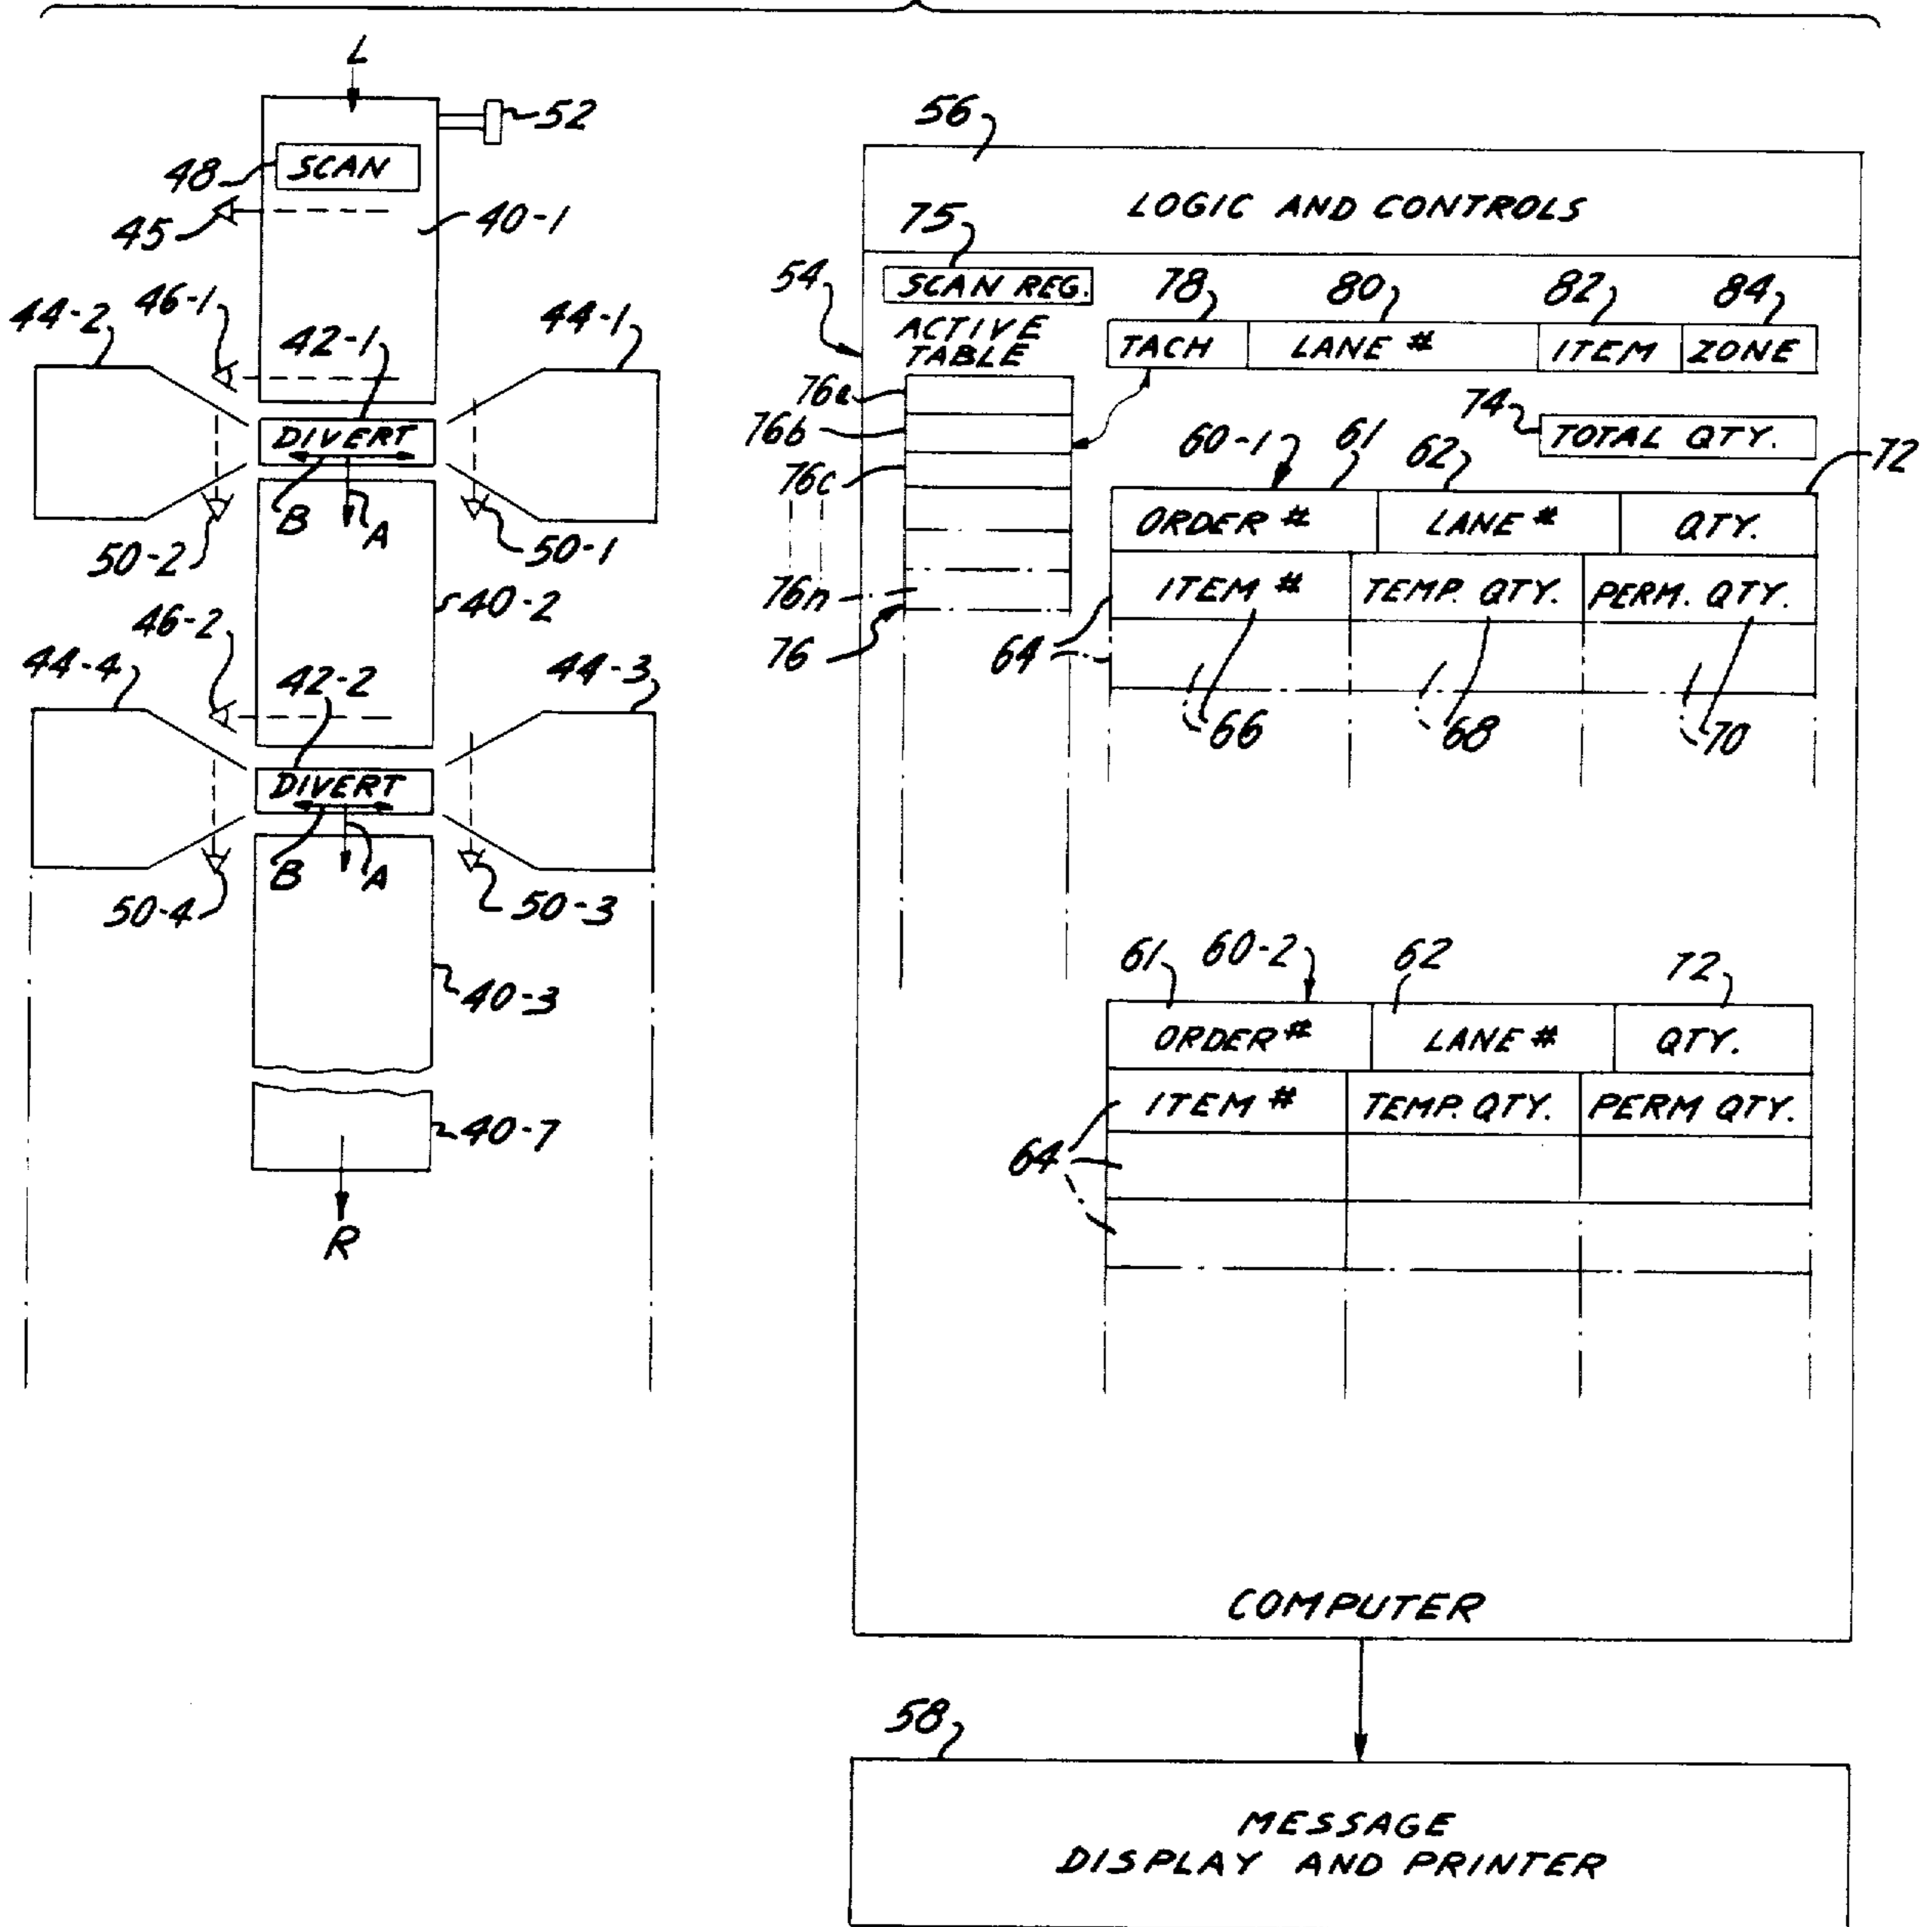 L
52
48
SCAN
45
40-1
44-2
46-1
42-1
44-1
DIVERT
B
A
50-2
50-1
40-2
46-2
44-4
42-2
44-3
DIVERT
B
A
50-4
50-3
40-3
40-7
R
56
LOGIC AND CONTROLS
75
54
SCAN REG.
78
80
82
84
ACTIVE
TABLE
TACH
LANE #
ITEM
ZONE
76a
76b
76c
76n
76
74
TOTAL QTY.
60-1
61
62
72
ORDER #
LANE #
QTY.
ITEM #
TEMP. QTY.
PERM. QTY.
64
66
68
70
61
60-2
62
72
ORDER #
LANE #
QTY.
ITEM #
TEMP. QTY.
PERM QTY.
64
COMPUTER
58
MESSAGE
DISPLAY AND PRINTER